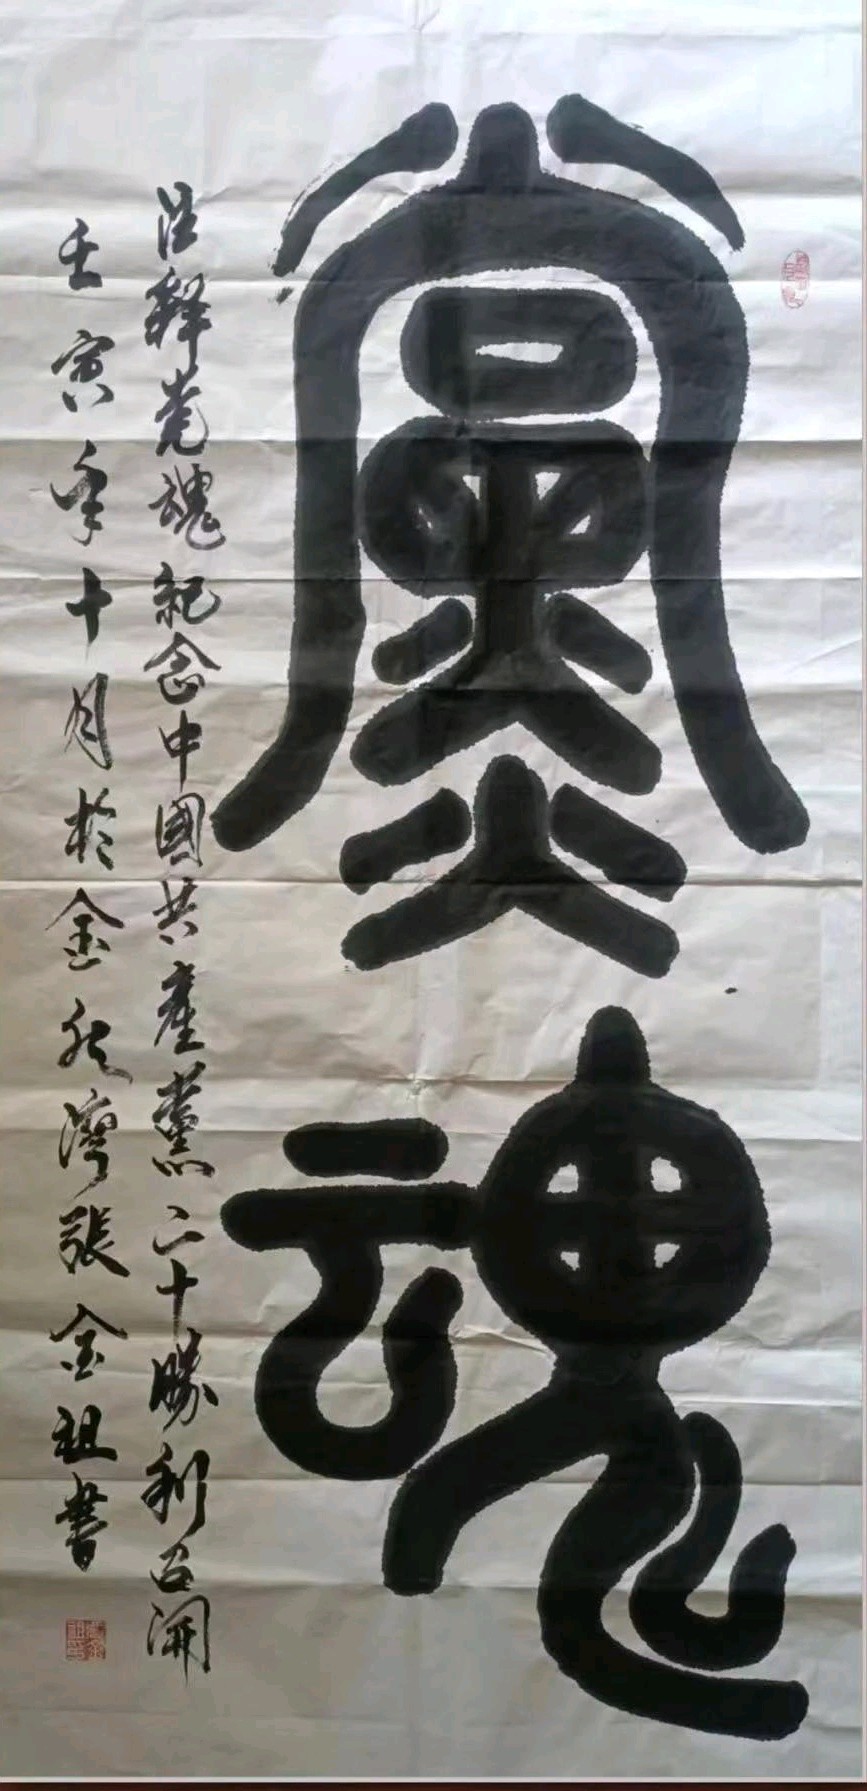 黨魂
注釋党魂紀念中國共產黨二十勝利召開
壬寅年十月於金秋灣張金祖書